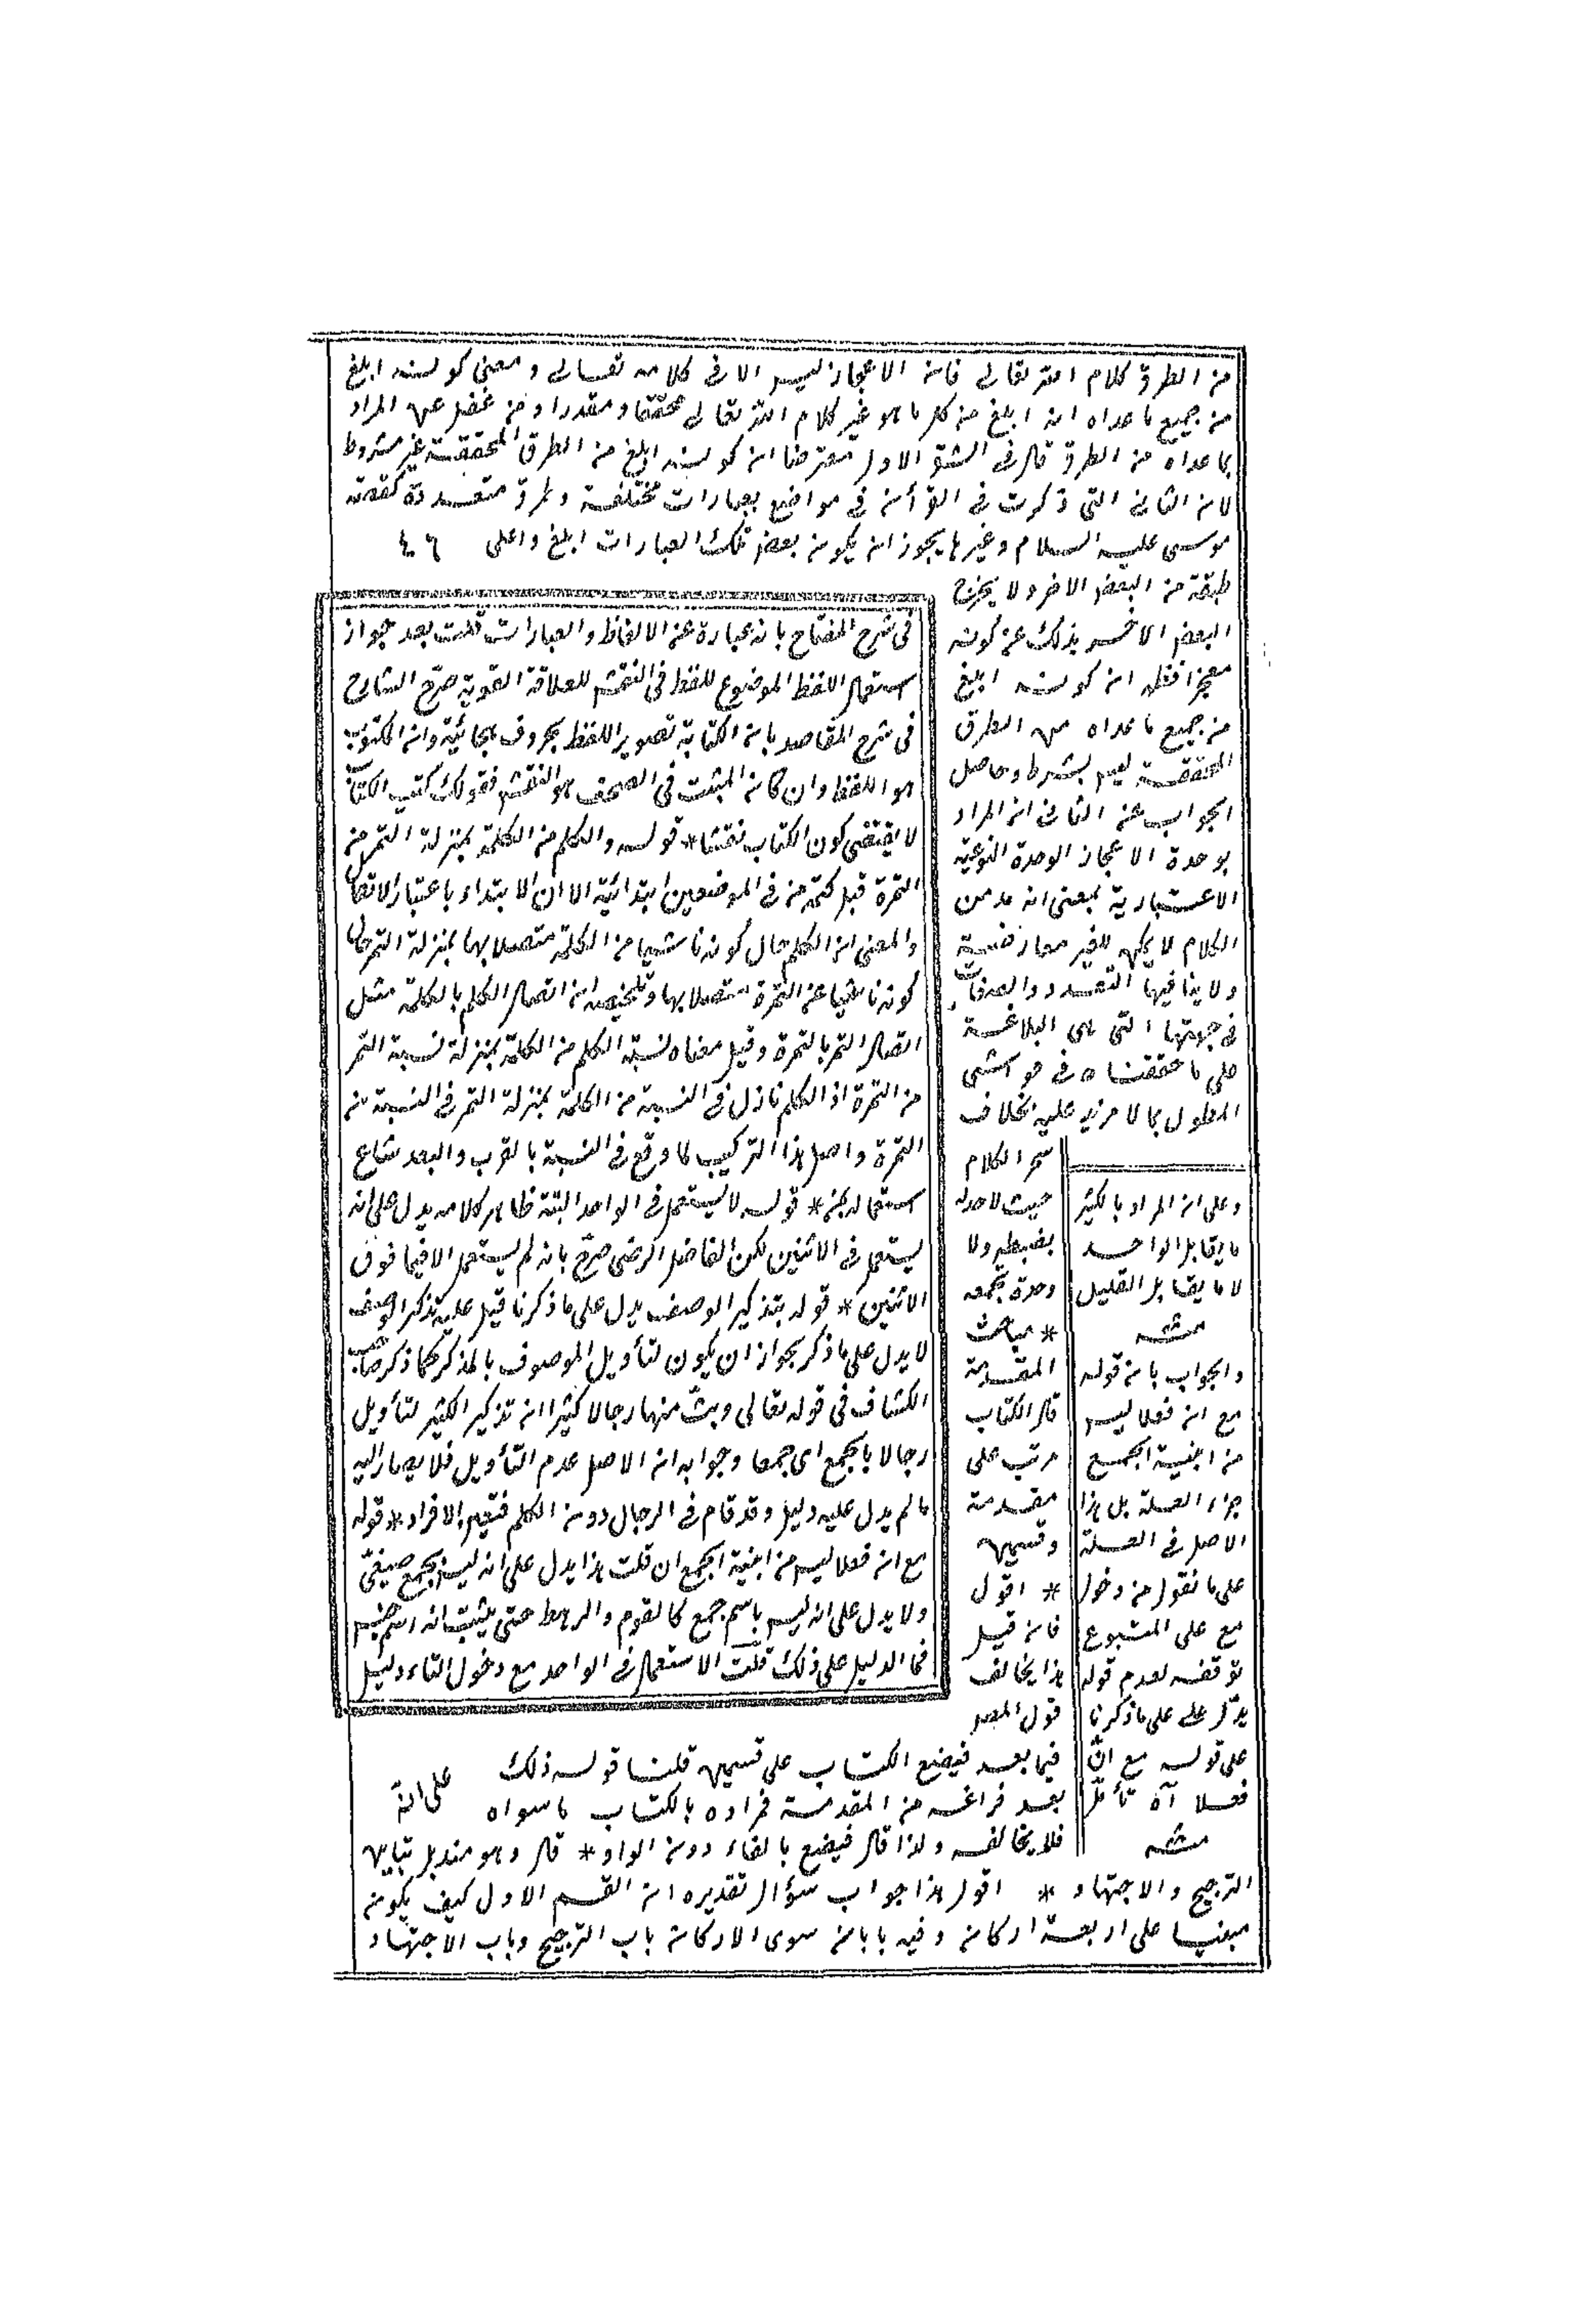 من الطرق كلام الله تعالى فان الاعجاز ليس الا فى كلامه تعالى و معنى كونه ابلغ
من جميع ما عداه انه ابلغ من كل ما هو غير كلام الله تعالى محققا و مقدرا و من غفل عن المراد
بما عداه من الطرق قال فى الشق الاول معترضا ان كونه ابلغ من الطرق المحققة غير مشروط
لان التى ذكرت فى القرأن فى مواضع بعبارات مختلفة و طرق متعددة كقصة
موسى عليه السلام و غيرها يجوز ان يكون بعض تلك العبارات ابلغ و اعلى ٤٦
طبقة من البعض الاخر و لا يخرج
البعض الاخر بذلك عن كونه
معجزا فظهر ان كونه ابلغ
من جميع ما عداه من الطرق
المحققة ليس بشرط و حاصل
الجواب عن الثانى ان المراد
بوحدة الاعجاز الوحدة النوعية
الاعتبارية بمعنى انه حد من
الكلام لا يمكن للغير معارضته
و لا ينافيها التعدد و الصفات
فى جهتها التى هى البلاغة
على ما حققناه فى حواشى
المطول بما لا مزيد عليه بخلاف
سحر الكلام
حيث لا حد له
يضبطه و لا
وحدة تجمعه
* مباحث
المقدمة
قال الكتاب
مرتب على
مقدمة
و قسمين
* اقول
فان قيل
هذا يخالف
قول المص
فيما بعد فيضع الكتاب على قسمين قلنا قوله ذلك
بعد فراغه من المقدمة فمراده بالكتاب ما سواه
فلا يخالفه و لذا قال فيضع بالفاء دون الواو * قال و هو مذيل ببابى
الترجيح و الاجتهاد * اقول هذا جواب سؤال تقديره ان القسم الاول كيف يكون
مبنيا على اربعة اركان و فيه بابان سوى الاركان باب الترجيح و باب الاجتهاد
فى شرح المفتاح بانه عبارة عن الالفاظ و العبارات قلت بعد جواز
استعمال اللفظ الموضوع للفظ فى النقش للعلاقة القوية صرّح الشارح
فى شرح المقاصد بان الكتابة تصوير اللفظ بحروف هجائية و ان المكتوب
هو اللفظ و ان كان المثبت فى الصحف هو النقش فقولك كتبت الكتاب
لا يقتضى كون الكتاب نقشا * قوله و الكلم من الكلمة بمنزلة التمر من
التمرة قيل كلمة من فى الموضعين ابتدائية الا ان الابتداء باعتبار الاتصال
و المعنى ان الكلم حال كونه ناشيا من الكلمة متصلا بها بمنزلة التمر حال
كونه ناشيا عن التمرة متصلا بها و تلخيصه ان اتصال الكلم بالكلمة مثل
اتصال التمر بالتمرة و قيل معناه نسبة الكلم من الكلمة بمنزلة نسبة التمر
من التمرة اذ الكلم نازل فى النسبة من الكلمة بمنزلة التمر فى النسبة من
التمرة و اصل هذا التركيب لما وقع فى النسبة بالقرب و البعد شاع
استعماله بمن * قوله لا يستعمل فى الواحد البتة ظاهر كلامه يدل على انه
يستعمل فى الاثنين لكن الفاضل الرضى صرّح بانه لم يستعمل الا فيما فوق
الاثنين * قوله بتذكير الوصف يدل على ما ذكرنا قيل عليه تذكير الوصف
لا يدل على ما ذكر بجواز ان يكون لتأويل الموصوف بالمذكر كما ذكر صاحب
الكشاف فى قوله تعالى و بثّ منهما رجالا كثيرا ان تذكير الكثير لتأويل
رجالا بالجمع اى جمعا و جوابه ان الاصل عدم التأويل فلا يصار اليه
ما لم يدل عليه دليل و قد قام فى الرجال دون الكلم فتعين الافراد * قوله
مع ان فعلا ليس من ابنية الجمع ان قلت هذا يدل على انه ليس بجمع صيغىّ
و لا يدل على انه ليس باسم جمع كالقوم و الرهط حتى يثبت انه اسم جنس
فما الدليل على ذلك قلت الاستعمال فى الواحد مع دخول التاء دليل
على انه
و على ان المراد بالكثير
ما يقابل الواحد
لا ما يقابل القليل
منه
و الجواب بان قوله
مع ان فعلا ليس
من ابنية الجمع
جزء العلة بل هذا
الاصل فى العلة
على ما نقول من دخول
مع على المتبوع
توقفه لعدم قوله
يدل على ما ذكرنا
على قوله مع انّ
فعلا آه تأمّل
منه